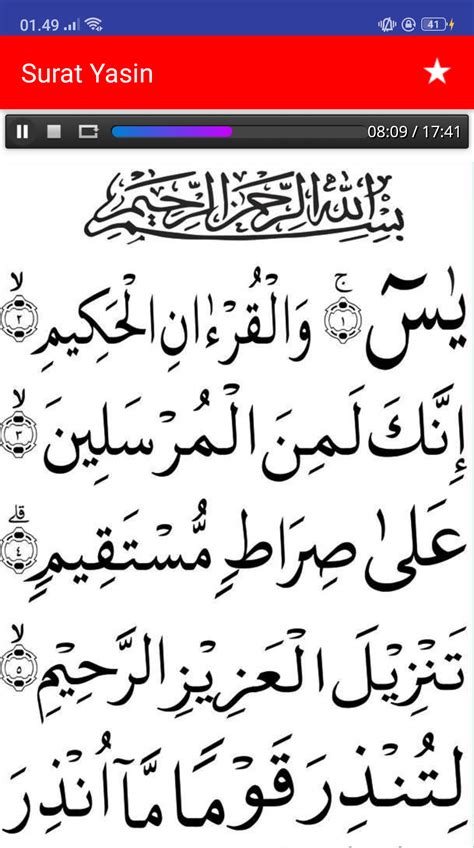 01.49 41
Surat Yasin
08:09 / 17:41
بِسْمِ اللّٰهِ الرَّحْمٰنِ الرَّحِيْمِ
يٰسۤ ۚ ﴿١﴾ وَالْقُرْءٰانِ الْحَكِيْمِ ۙ ﴿٢﴾
إِنَّكَ لَمِنَ الْمُرْسَلِيْنَ ۙ ﴿٣﴾
عَلٰى صِرَاطٍ مُّسْتَقِيْمٍ ۗ ﴿٤﴾
تَنْزِيْلَ الْعَزِيْزِ الرَّحِيْمِ ۙ ﴿٥﴾
لِتُنْذِرَ قَوْمًا مَّآ اُنْذِرَ